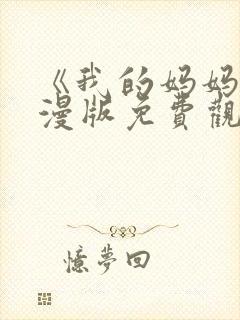 《我的妈妈
漫版免費觀
憶夢回